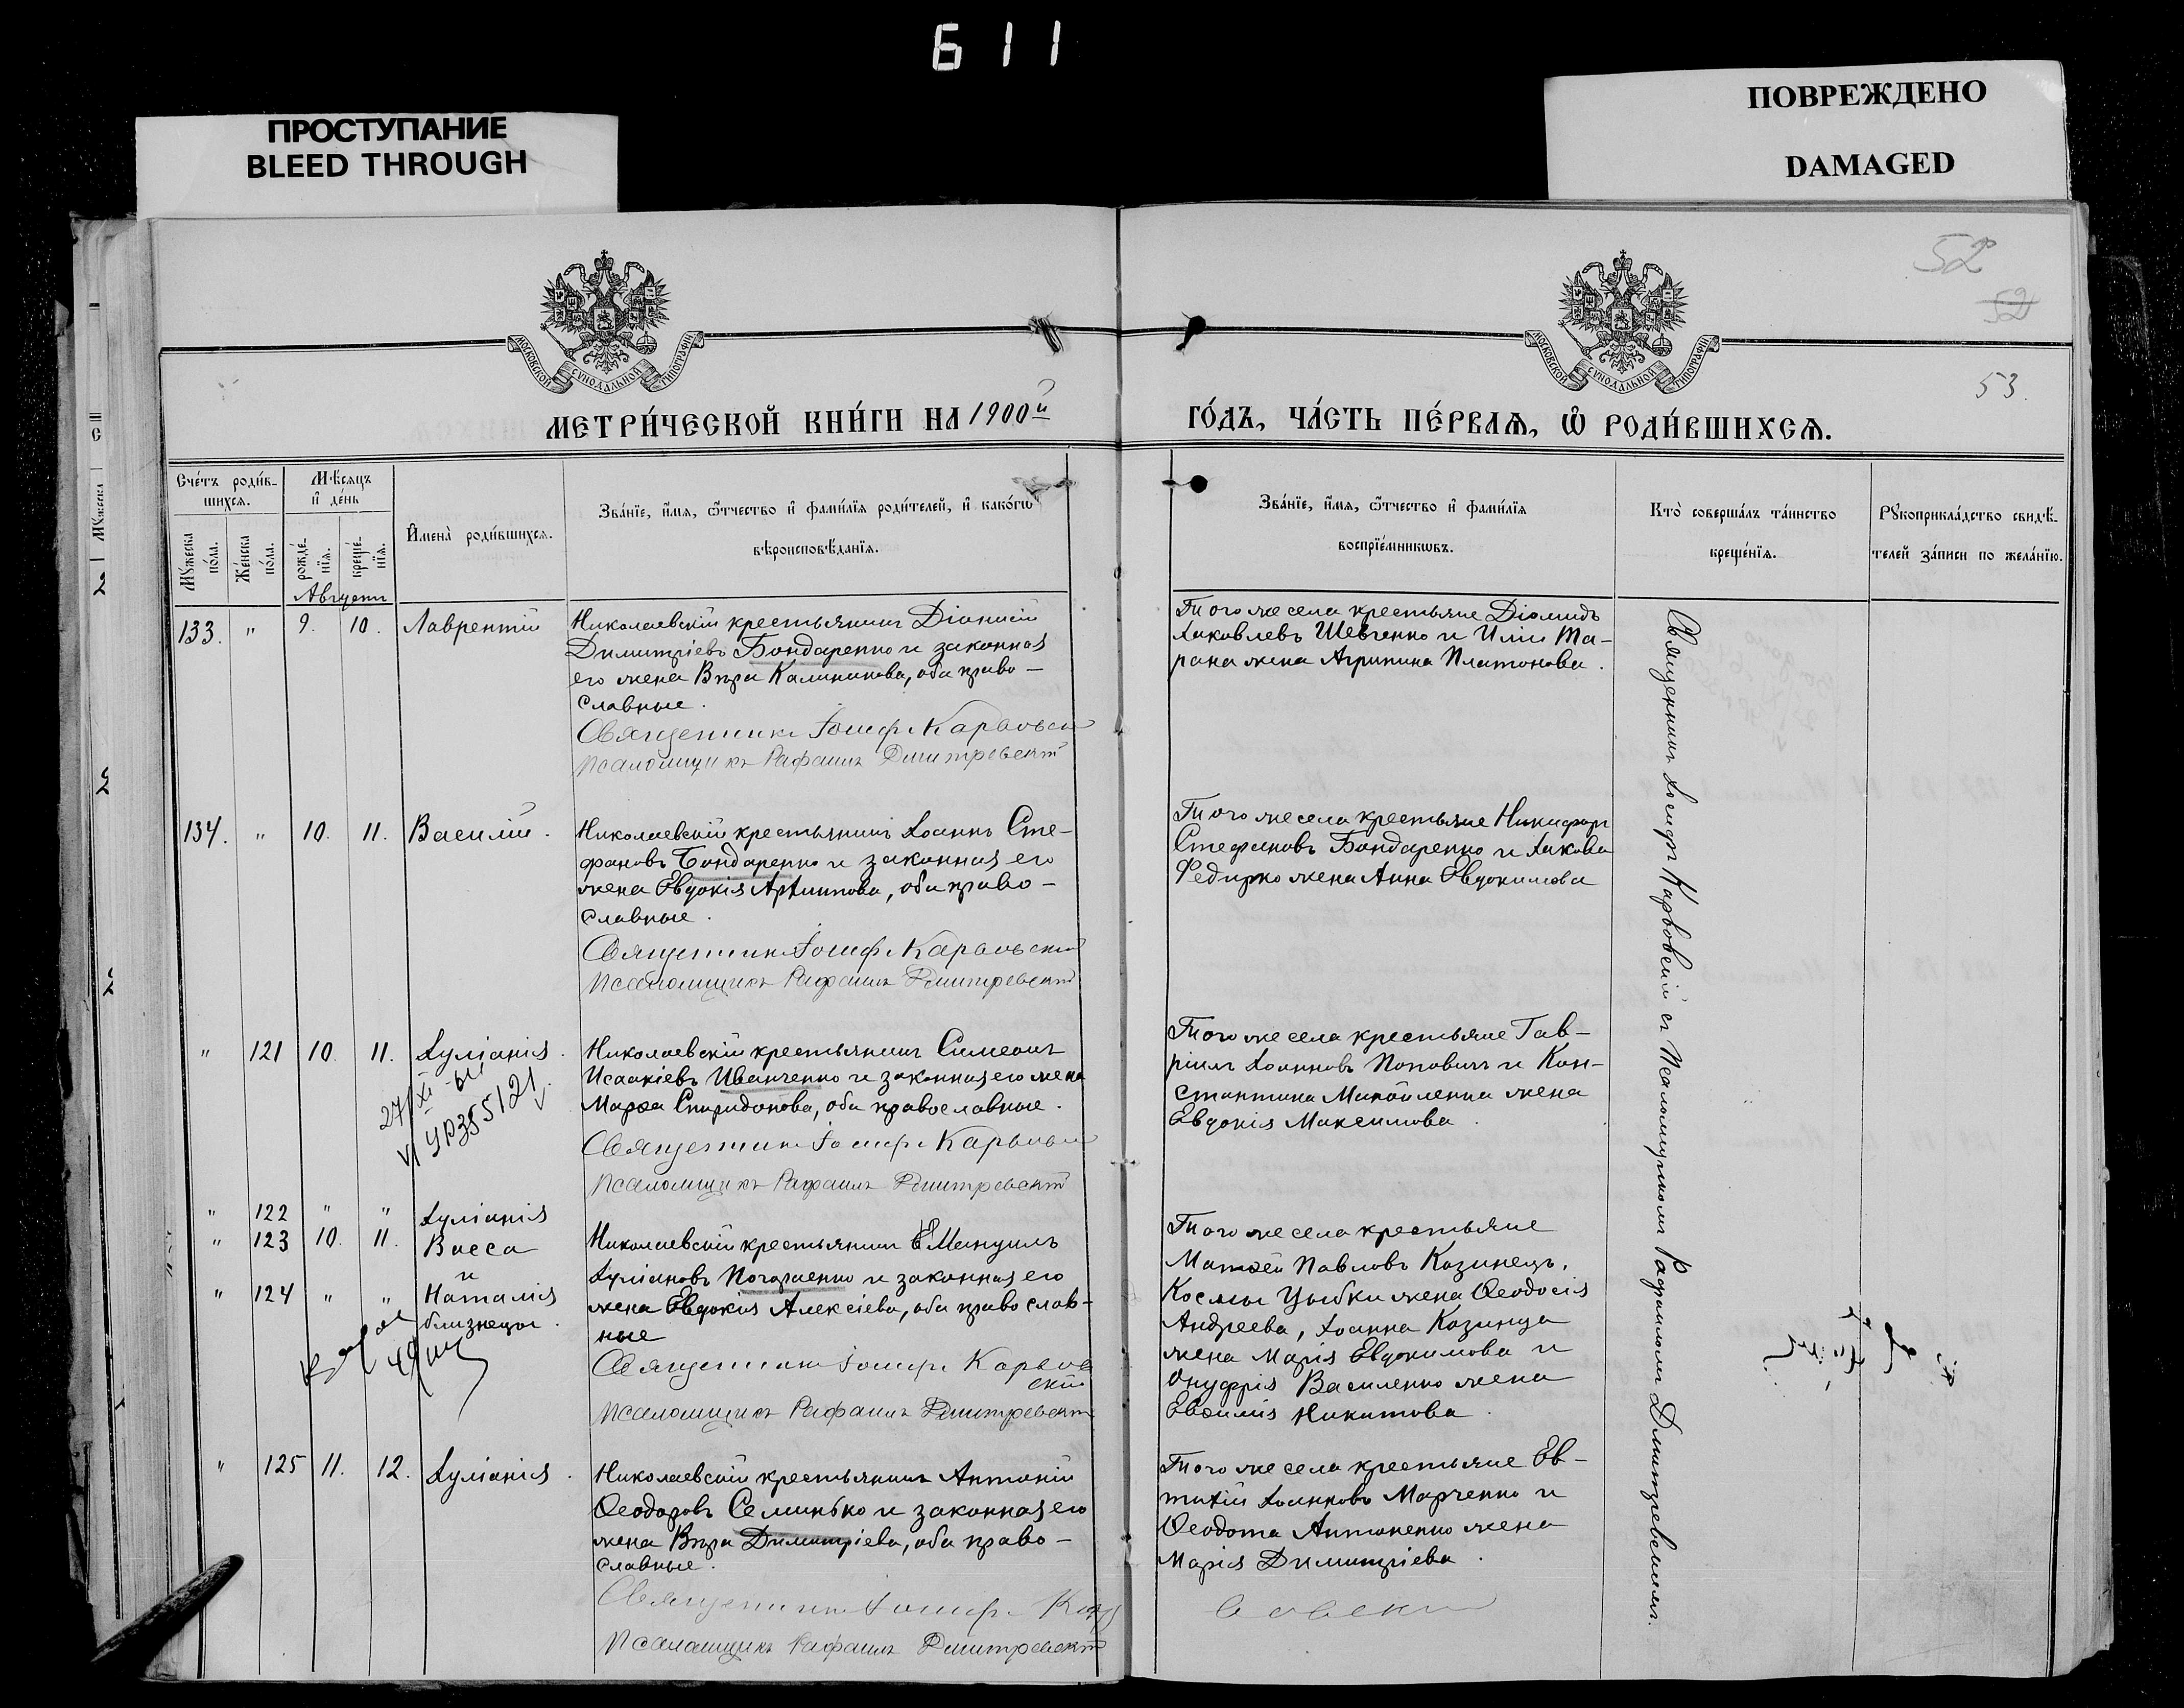 611
ПРОСТУПАНИЕ
BLEED THROUGH
ПОВРЕЖДЕНО
DAMAGED
52
52
53
МОСКОВСКОЙ СѴНОДАЛЬНОЙ ТИПОГРАФІИ
МОСКОВСКОЙ СѴНОДАЛЬНОЙ ТИПОГРАФІИ
МЕТРИ́ЧЕСКОЙ КНИ́ГИ НА 1900й
ГО́ДЪ, ЧА́СТЬ ПЕ́РВАѦ, Ѡ҆ РОДИ́ВШИХСѦ.
Сче́тъ роди́в-
шихся.
Мѣсяцъ
и҆ де́нь
Мꙋжеска по́ла.
Же́нска по́ла.
рожде́-
нїя.
креще́-
нїя.
Августъ
И҆мена̀ роди́вшихся.
Зва́нїе, и҆́мя, ѻ҆́тчество и҆ фами́лїя роди́телей, и҆ како́гѡ
вѣроисповѣ́данїя.
Зва́нїе, и҆́мя, ѻ҆́тчество и҆ фами́лїя
воспрїе́мникѡвъ.
Кто̀ соверша́лъ та́инство
креще́нїя.
Рꙋкоприкла́дство свидѣ́-
телей за́писи по жела́нїю.
133. " 9. 10. Лаврентій
Николаевскій крестьянинъ Діонисій
Димитріевъ Бондаренко и законная
его жена Вѣра Калиникова, оба право-
славные.
Священникъ Іосиф Карвовскій
Псаломщикъ Рафаилъ Дмитревскій
Того же села крестьяне Діомидъ
Іаковлевъ Шевченко и Иліи Та-
рана жена Агрипина Платонова.
134. " 10. 11. Василій.
Николаевскій крестьянинъ Іоаннъ Сте-
фановъ Бондаренко и законная его
жена Евдокія Архиппова, оба право-
славные.
Священникъ Іосиф Карвовскій
Псаломщикъ Рафаилъ Дмитревскій
Того же села крестьяне Никифоръ
Стефановъ Бондаренко и Іакова
Федирко жена Анна Евдокимова
" 121 10. 11. Іуліанія.
Николаевскій крестьянинъ Симеонъ
Исаакіевъ Иванченко и законная его жена
Марѳа Спиридонова, оба православные.
Священникъ Іосиф Карвовскій
Псаломщикъ Рафаилъ Дмитревскій
Того же села крестьяне Гав-
ріилъ Іоанновъ Поповичъ и Кон-
стантина Михайленка жена
Евдокія Максимова.
" 122 " " Іуліанія
" 123 10. 11. Васса
и
" 124 " " Наталія
близнецы.
Николаевскій крестьянинъ Емануилъ
Іуліановъ Погориенко и законная его
жена Евдокія Алексіева, оба православ-
ные
Священникъ Іосиф Карвов
скій
Псаломщикъ Рафаилъ Дмитревскій
Того же села крестьяне
Матѳей Павловъ Козинецъ,
Космы Цыбки жена Ѳеодосія
Андреева, Іоанна Козинца
жена Марія Евдокимова и
Онуфрія Василенко жена
Евѳимія Никитова.
" 125 11. 12. Іуліанія.
Николаевскій крестьянинъ Антоній
Ѳеодоровъ Семинько и законная его
жена Вѣра Димитріева, оба право-
славные.
Священникъ Іосиф Кар
вовскі
Псаломщикъ Рафаилъ Дмитревскій
Того же села крестьяне Ев-
тихій Іоанновъ Марченко и
Ѳеодота Антоненко жена
Марія Димитріева.
Священникъ Іосифъ Карвовскій съ Псаломщикомъ Рафаиломъ Дмитревскимъ.